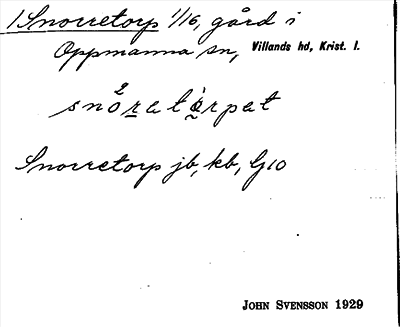 1 Snorretorp 1/16, gård i
Oppmanna sn, Villands hd, Krist. l.
snåratårpat
Snorretorp jb, kb, G10
JOHN SVENSSON 1929